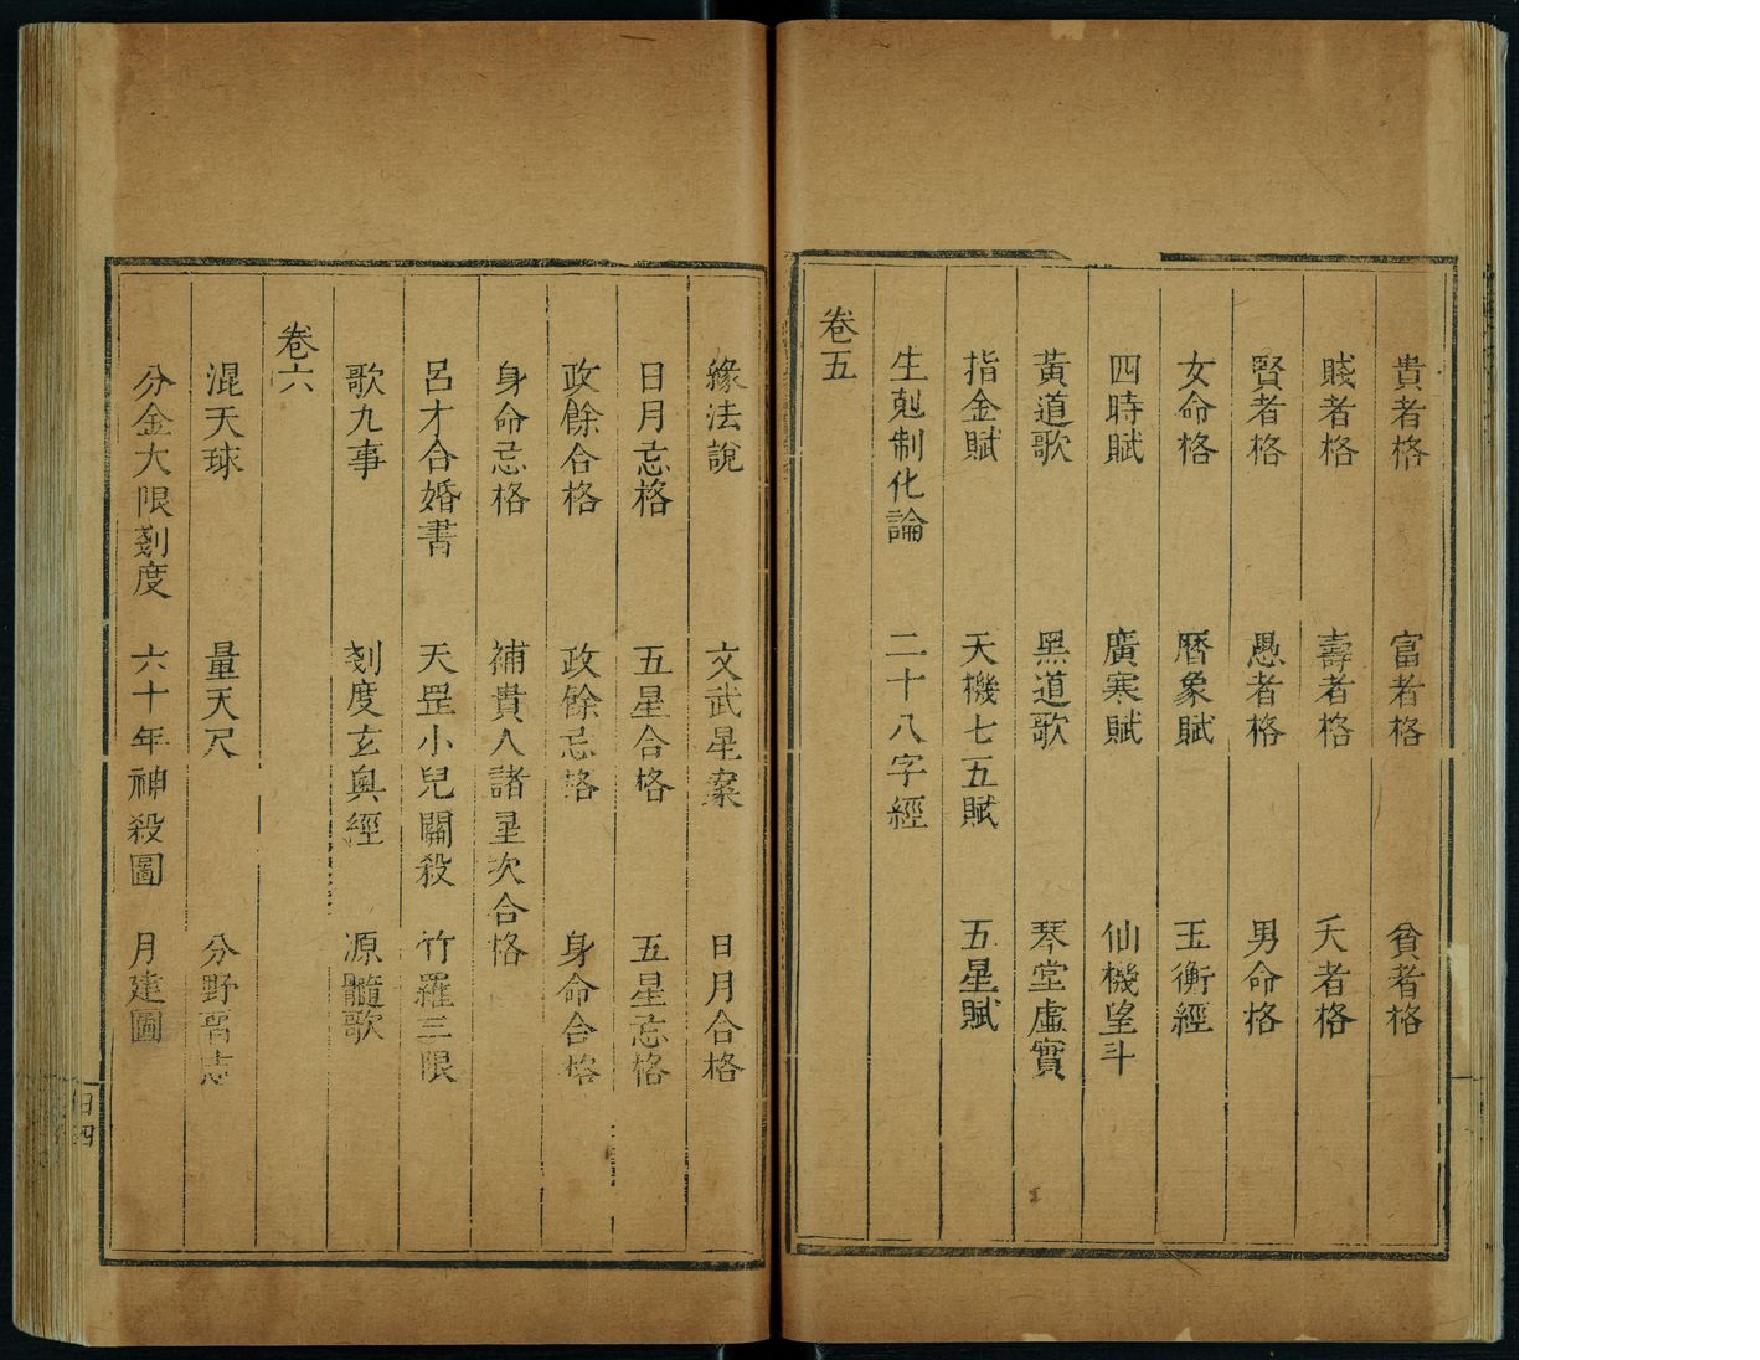 貴者格 富者格 貧者格
賤者格 壽者格 夭者格
賢者格 愚者格 男命格
女命格 曆象賦 玉衡經
四時賦 廣寒賦 仙機望斗
黃道歌 黑道歌 琴堂虛實
指金賦 天機七五賦 五星賦
生剋制化論 二十八字經
卷五
緣法說 文武星案 日月合格
日月忌格 五星合格 五星忌格
政餘合格 政餘忌格 身命合格
身命忌格 補貴人諸星次合格
呂才合婚書 天罡小兒關殺 竹羅三限
歌九事 刻度玄奧經 源髓歌
卷六
混天球 量天尺 分野
分金大限刻度 六十年神殺圖 月建圖